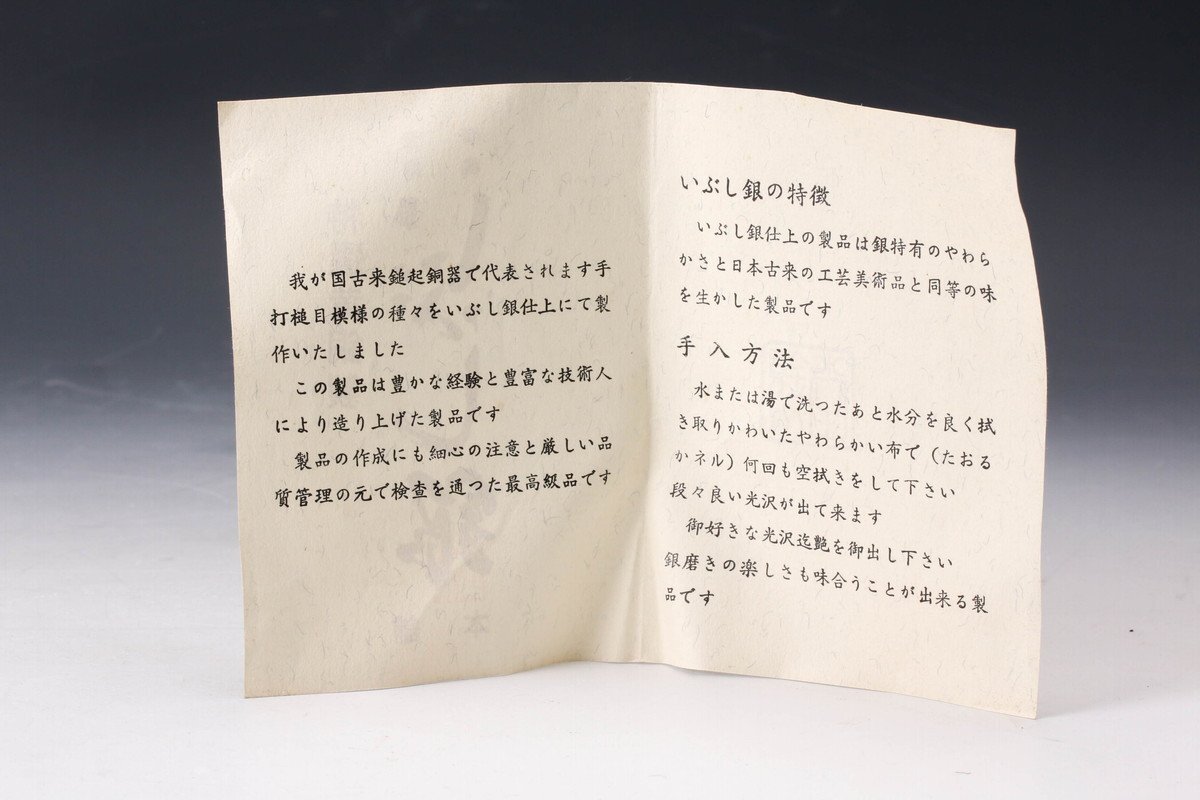 我が国古来鎚起銅器で代表されます手
打槌目模様の種々をいぶし銀仕上にて製
作いたしました
この製品は豊かな経験と豊富な技術人
により造り上げた製品です
製品の作成にも細心の注意と厳しい品
質管理の元で検査を通つた最高級品です
いぶし銀の特徴
いぶし銀仕上の製品は銀特有のやわら
かさと日本古来の工芸美術品と同等の味
を生かした製品です
手入方法
水または湯で洗つたあと水分を良く拭
き取りかわいたやわらかい布で（たおる
かネル）何回も空拭きをして下さい
段々良い光沢が出て来ます
御好きな光沢迄艶を御出し下さい
銀磨きの楽しさも味合うことが出来る製
品です